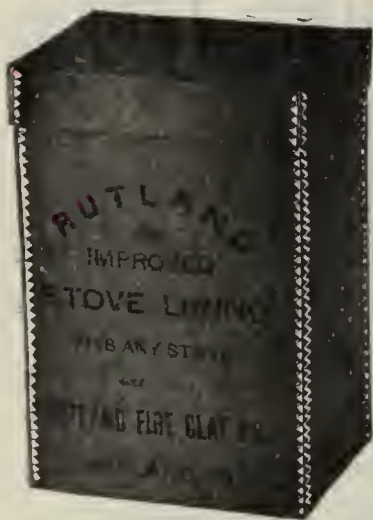 RUTLAND
IMPROVED
STOVE LINING
FITS ANY STOVE
RUTLAND FIRE CLAY CO.